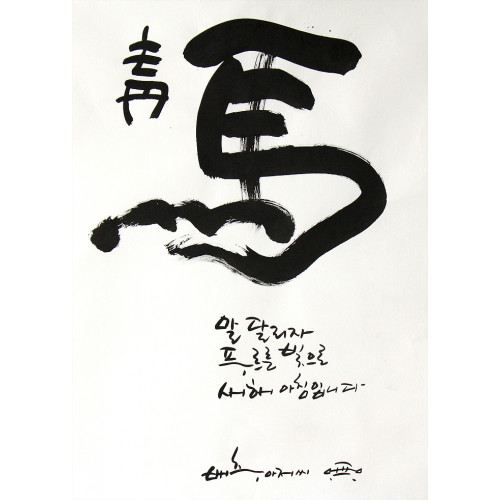 靑 馬
말 달리자
푸르른 빛으로
새해 아침입니다
아저씨